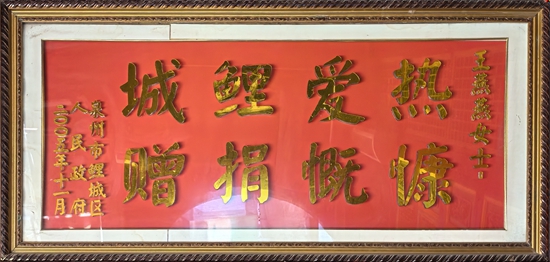 王燕燕女士：
热爱鲤城
慷慨捐赠
泉州市鲤城区
人民政府
二〇〇五年十一月